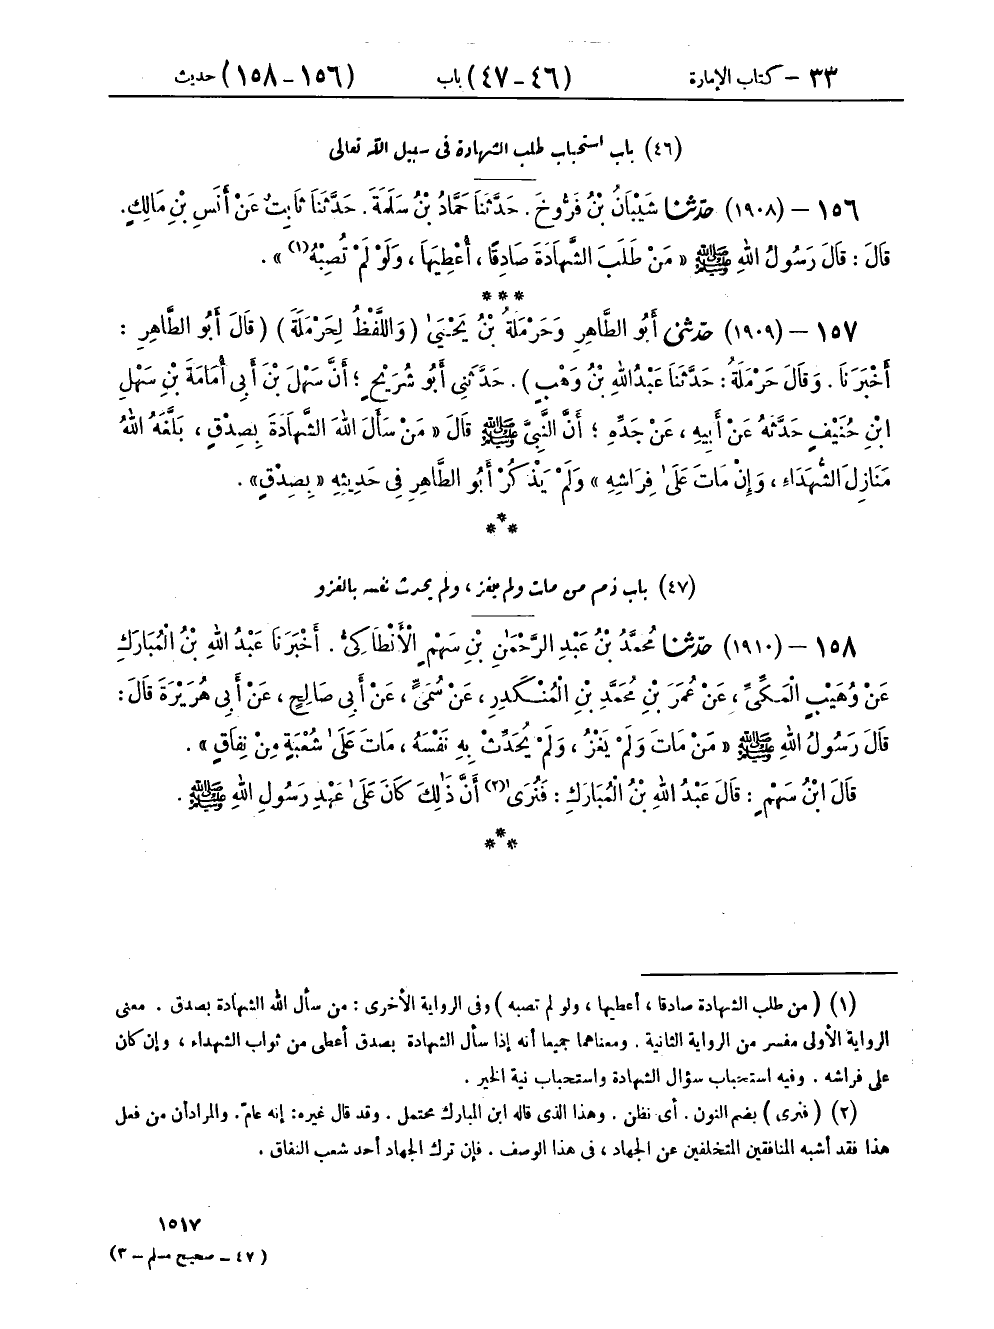 ٣٣ – كتاب الإمارة (٤٦-٤٧) باب (١٥٦-١٥٨) حديث
(٤٦) باب استحباب طلب الشهادة فى سبيل الله تعالى
١٥٦ – (١٩٠٨) حَدَّثَنَا شَيْبَانُ بْنُ فَرُّوخَ. حَدَّثَنَا حَمَّادُ بْنُ سَلَمَةَ. حَدَّثَنَا ثَابِتٌ عَنْ أَنَسِ بْنِ مَالِكٍ.
قَالَ: قَالَ رَسُولُ اللهِ ﷺ « مَنْ طَلَبَ الشَّهَادَةَ صَادِقًا، أُعْطِيَهَا، وَلَوْ لَمْ تُصِبْهُ(١) ».
***
١٥٧ – (١٩٠٩) حَدَّثَنِى أَبُو الطَّاهِرِ وَحَرْمَلَةُ بْنُ يَحْيَىٰ (وَاللَّفْظُ لِحَرْمَلَةَ) (قَالَ أَبُو الطَّاهِرِ:
أَخْبَرَنَا. وَقَالَ حَرْمَلَةُ: حَدَّثَنَا عَبْدُ اللهِ بْنُ وَهْبٍ). حَدَّثَنِى أَبُو شُرَيْحٍ؛ أَنَّ سَهْلَ بْنَ أَبِى أُمَامَةَ بْنِ سَهْلِ
ابْنِ حُنَيْفٍ حَدَّثَهُ عَنْ أَبِيهِ، عَنْ جَدِّهِ؛ أَنَّ النَّبِيَّ ﷺ قَالَ « مَنْ سَأَلَ اللهَ الشَّهَادَةَ بِصِدْقٍ، بَلَّغَهُ اللهُ
مَنَازِلَ الشُّهَدَاءِ، وَإِنْ مَاتَ عَلَىٰ فِرَاشِهِ » وَلَمْ يَذْكُرْ أَبُو الطَّاهِرِ فِى حَدِيثِهِ « بِصِدْقٍ ».
***
(٤٧) باب ذم من مات ولم يغز، ولم يحدث نفسه بالغزو
١٥٨ – (١٩١٠) حَدَّثَنَا مُحَمَّدُ بْنُ عَبْدِ الرَّحْمَٰنِ بْنِ سَهْمٍ الْأَنْطَاكِىُّ. أَخْبَرَنَا عَبْدُ اللهِ بْنُ الْمُبَارَكِ
عَنْ وُهَيْبٍ الْمَكِّىِّ، عَنْ عُمَرَ بْنِ مُحَمَّدِ بْنِ الْمُنْكَدِرِ، عَنْ سُمَىٍّ، عَنْ أَبِى صَالِحٍ، عَنْ أَبِى هُرَيْرَةَ قَالَ:
قَالَ رَسُولُ اللهِ ﷺ « مَنْ مَاتَ وَلَمْ يَغْزُ، وَلَمْ يُحَدِّثْ بِهِ نَفْسَهُ، مَاتَ عَلَىٰ شُعْبَةٍ مِنْ نِفَاقٍ ».
قَالَ ابْنُ سَهْمٍ: قَالَ عَبْدُ اللهِ بْنُ الْمُبَارَكِ: فَنُرَىٰ(٢) أَنَّ ذَٰلِكَ كَانَ عَلَىٰ عَهْدِ رَسُولِ اللهِ ﷺ.
***
(١) (من طلب الشهادة صادقا، أعطيها، ولو لم تصبه) وفى الرواية الأخرى: من سأل الله الشهادة بصدق. معنى
الرواية الأولى مفسر من الرواية الثانية. ومعناهما جميعا أنه إذا سأل الشهادة بصدق أعطى من ثواب الشهداء، وإن كان
على فراشه. وفيه استحباب سؤال الشهادة واستحباب نية الخير.
(٢) (فنرى) بضم النون. أى نظن. وهذا الذى قاله ابن المبارك محتمل. وقد قال غيره: إنه عامّ. والمراد أن من فعل
هذا فقد أشبه المنافقين المتخلفين عن الجهاد، فى هذا الوصف. فإن ترك الجهاد أحد شعب النفاق.
١٥١٧
(٤٧ – صحيح مسلم – ٣)